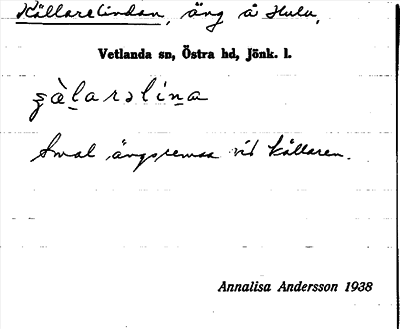 Källarelindan, äng å Hulu,
Vetlanda sn, Östra hd, Jönk. l.
Smal ängsremsa vid källaren.
Annalisa Andersson 1938